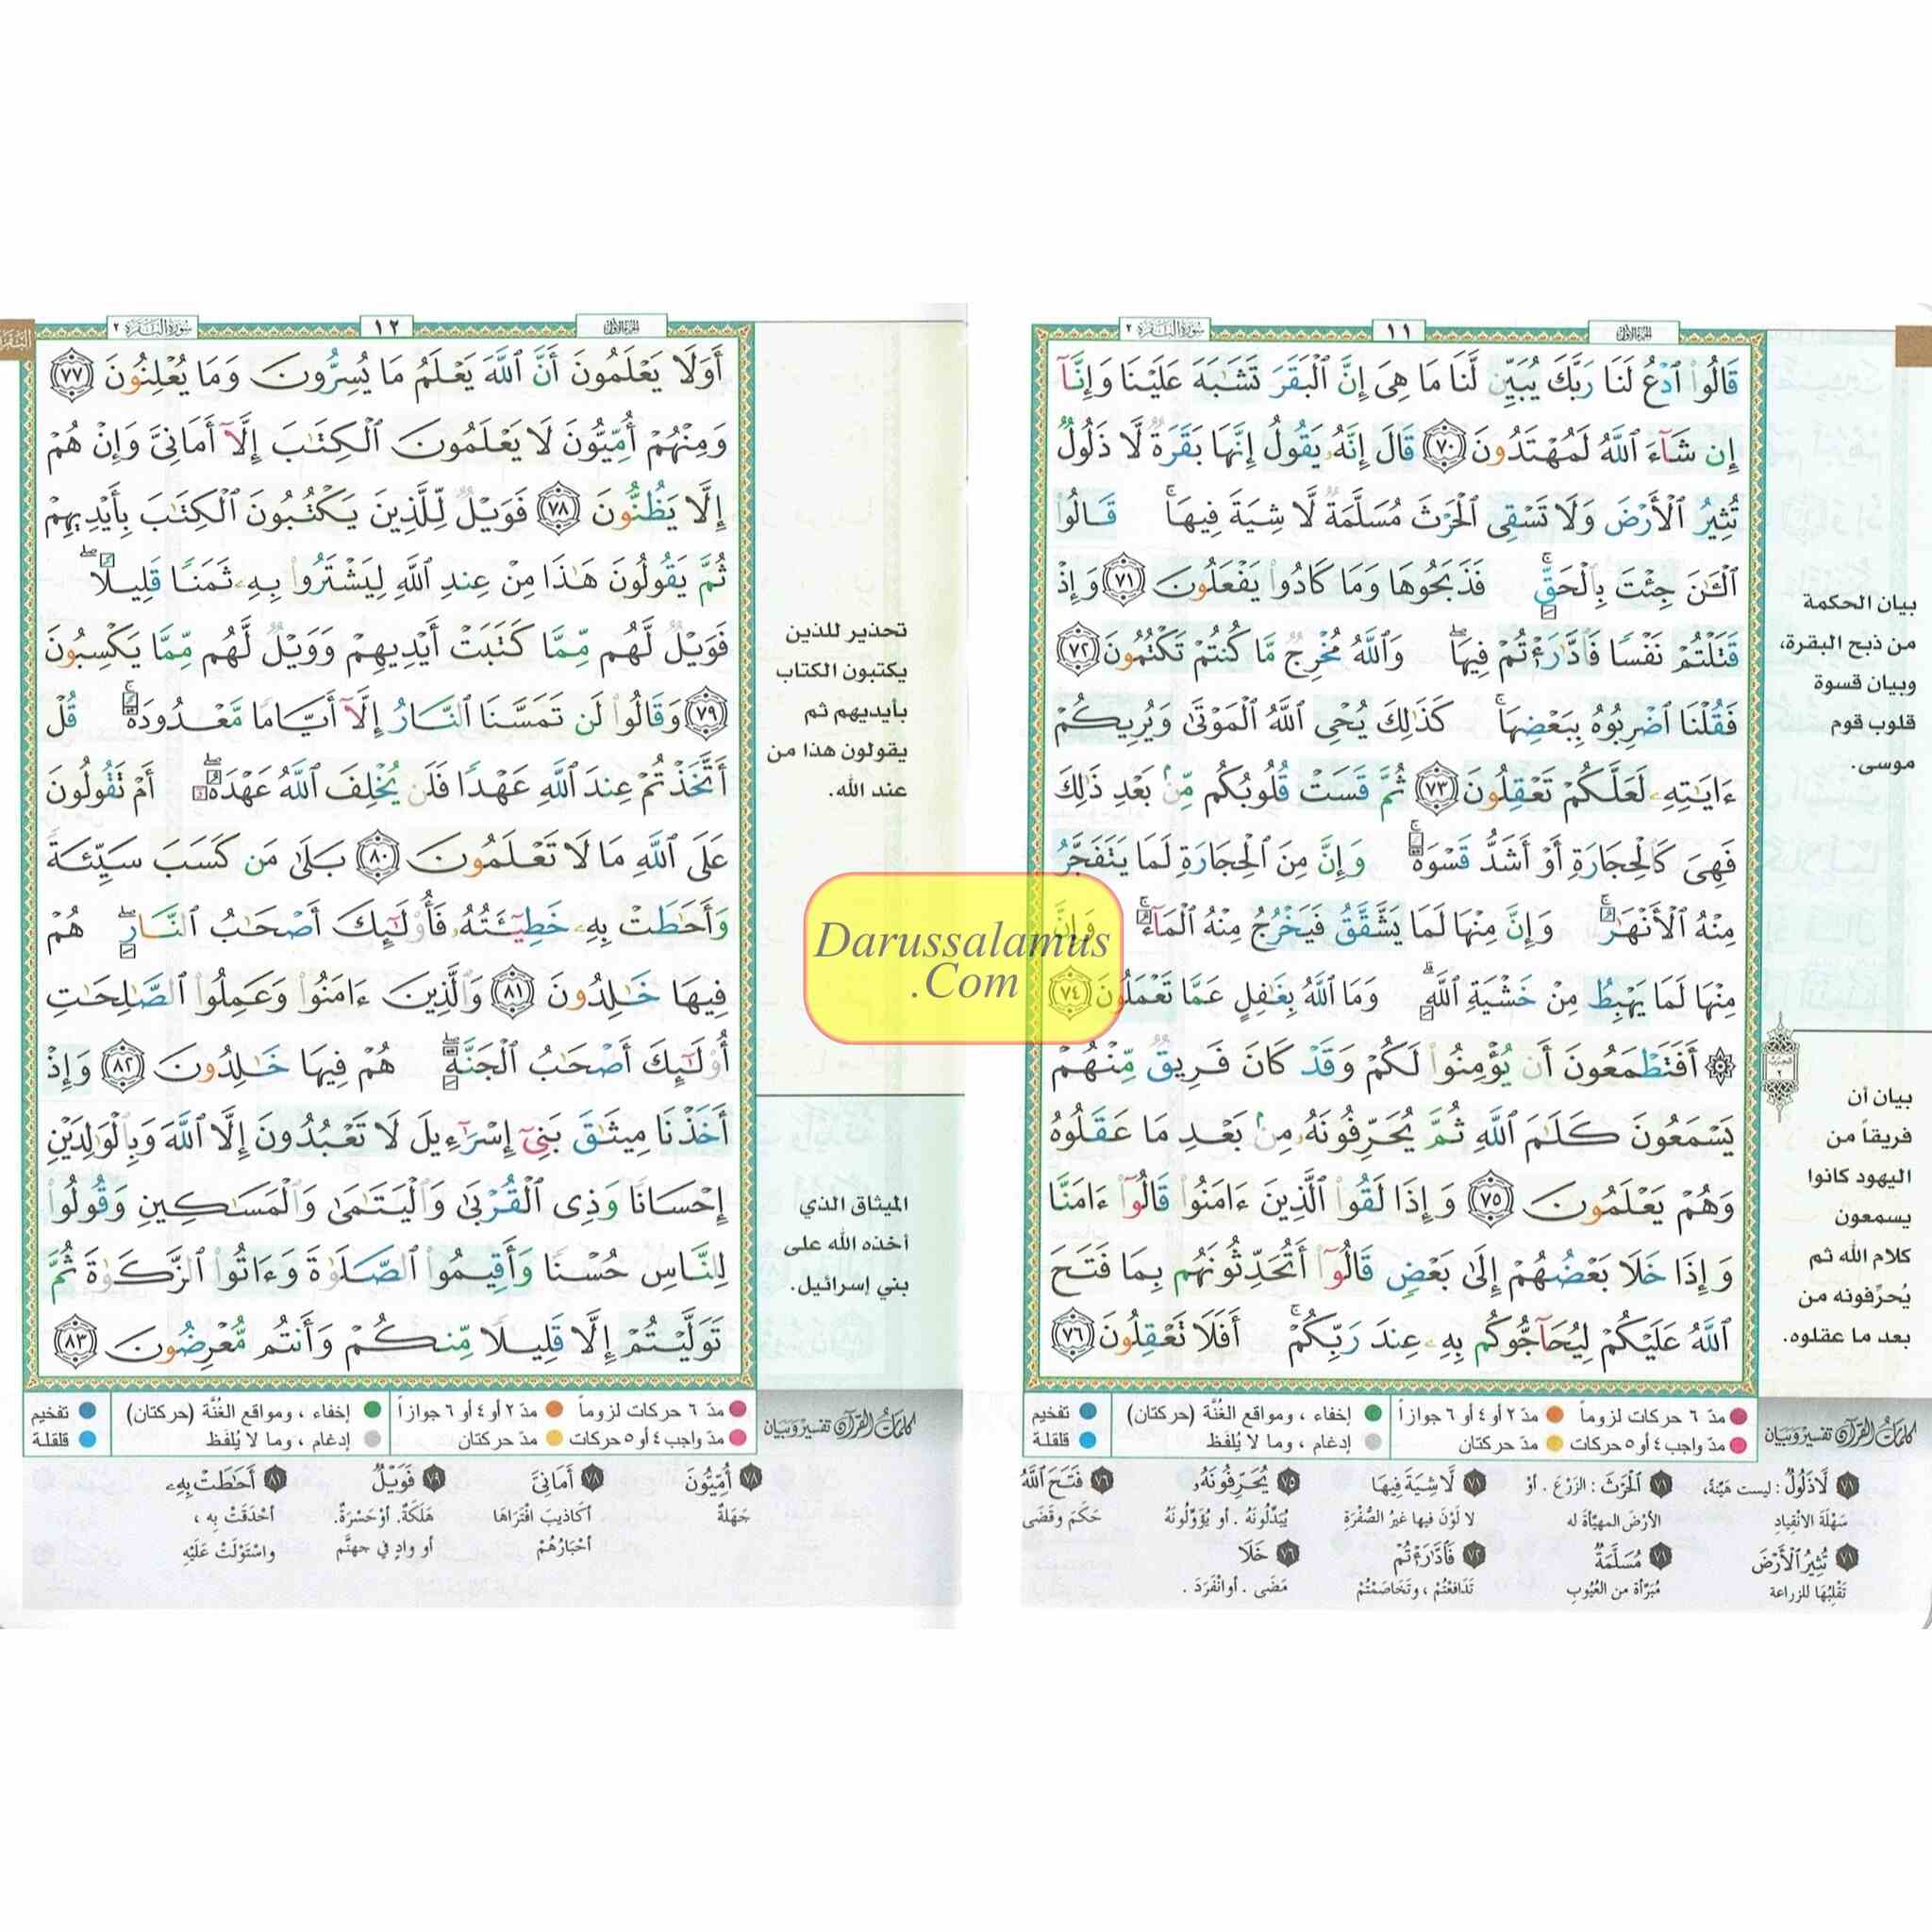 الجزء الأول
١١
سورة البقرة ٢
قَالُوا۟ ٱدْعُ لَنَا رَبَّكَ يُبَيِّن لَّنَا مَا هِىَ إِنَّ ٱلْبَقَرَ تَشَـٰبَهَ عَلَيْنَا وَإِنَّآ
إِن شَآءَ ٱللَّهُ لَمُهْتَدُونَ ٧٠ قَالَ إِنَّهُۥ يَقُولُ إِنَّهَا بَقَرَةٌ لَّا ذَلُولٌ
تُثِيرُ ٱلْأَرْضَ وَلَا تَسْقِى ٱلْحَرْثَ مُسَلَّمَةٌ لَّا شِيَةَ فِيهَا ۚ قَالُوا۟
ٱلْـَٔـٰنَ جِئْتَ بِٱلْحَقِّ ۚ فَذَبَحُوهَا وَمَا كَادُوا۟ يَفْعَلُونَ ٧١ وَإِذْ
قَتَلْتُمْ نَفْسًا فَٱدَّٰرَْٰٔتُمْ فِيهَا ۖ وَٱللَّهُ مُخْرِجٌ مَّا كُنتُمْ تَكْتُمُونَ ٧٢
فَقُلْنَا ٱضْرِبُوهُ بِبَعْضِهَا ۚ كَذَٰلِكَ يُحْىِ ٱللَّهُ ٱلْمَوْتَىٰ وَيُرِيكُمْ
ءَايَـٰتِهِۦ لَعَلَّكُمْ تَعْقِلُونَ ٧٣ ثُمَّ قَسَتْ قُلُوبُكُم مِّنۢ بَعْدِ ذَٰلِكَ
فَهِىَ كَٱلْحِجَارَةِ أَوْ أَشَدُّ قَسْوَةً ۚ وَإِنَّ مِنَ ٱلْحِجَارَةِ لَمَا يَتَفَجَّرُ
مِنْهُ ٱلْأَنْهَـٰرُ ۚ وَإِنَّ مِنْهَا لَمَا يَشَّقَّقُ فَيَخْرُجُ مِنْهُ ٱلْمَآءُ ۚ وَإِنَّ
مِنْهَا لَمَا يَهْبِطُ مِنْ خَشْيَةِ ٱللَّهِ ۗ وَمَا ٱللَّهُ بِغَـٰفِلٍ عَمَّا تَعْمَلُونَ ٧٤
۞ أَفَتَطْمَعُونَ أَن يُؤْمِنُوا۟ لَكُمْ وَقَدْ كَانَ فَرِيقٌ مِّنْهُمْ
يَسْمَعُونَ كَلَـٰمَ ٱللَّهِ ثُمَّ يُحَرِّفُونَهُۥ مِنۢ بَعْدِ مَا عَقَلُوهُ
وَهُمْ يَعْلَمُونَ ٧٥ وَإِذَا لَقُوا۟ ٱلَّذِينَ ءَامَنُوا۟ قَالُوٓا۟ ءَامَنَّا
وَإِذَا خَلَا بَعْضُهُمْ إِلَىٰ بَعْضٍ قَالُوٓا۟ أَتُحَدِّثُونَهُم بِمَا فَتَحَ
ٱللَّهُ عَلَيْكُمْ لِيُحَآجُّوكُم بِهِۦ عِندَ رَبِّكُمْ ۚ أَفَلَا تَعْقِلُونَ ٧٦
بيان الحكمة
من ذبح البقرة،
وبيان قسوة
قلوب قوم
موسى.
الحزب
٢
بيان أن
فريقاً من
اليهود كانوا
يسمعون
كلام الله ثم
يُحرِّفونه من
بعد ما عقلوه.
كلمات القرآن تفسير وبيان
مدّ ٦ حركات لزوماً مدّ ٢ أو ٤ أو ٦ جوازاً إخفاء ، ومواقع الغُنَّة (حركتان) تفخيم
مدّ واجب ٤ أو ٥ حركات مدّ حركتان إدغام ، وما لا يُلفَظ قلقلة
٧١ لَا ذَلُولٌ : ليست هَيِّنةً، ٧١ ٱلْحَرْثَ : الزَرْعَ . أوْ ٧١ لَّا شِيَةَ فِيهَا ٧٥ يُحَرِّفُونَهُۥ ٧٦ فَتَحَ ٱللَّهُ
سَهْلَةَ الانْقِيادِ الأرْضَ المهيَّأةَ له لا لَوْنَ فيها غيرُ الصُّفْرَةِ يُبَدِّلُونَهُ . أو يُؤَوِّلُونَهُ حَكَمَ وقَضَى
٧١ تُثِيرُ ٱلْأَرْضَ ٧١ مُسَلَّمَةٌ ٧٢ فَٱدَّٰرَْٰٔتُمْ ٧٦ خَلَا
تَقْلِبُهَا للزراعة مُبَرَّأة من العُيُوبِ تَدَافَعْتُمْ ، وتَخَاصَمْتُمْ مَضَى . أو انْفَرَدَ .
الجزء الأول
١٢
سورة البقرة ٢
أَوَلَا يَعْلَمُونَ أَنَّ ٱللَّهَ يَعْلَمُ مَا يُسِرُّونَ وَمَا يُعْلِنُونَ ٧٧
وَمِنْهُمْ أُمِّيُّونَ لَا يَعْلَمُونَ ٱلْكِتَـٰبَ إِلَّآ أَمَانِىَّ وَإِنْ هُمْ
إِلَّا يَظُنُّونَ ٧٨ فَوَيْلٌ لِّلَّذِينَ يَكْتُبُونَ ٱلْكِتَـٰبَ بِأَيْدِيهِمْ
ثُمَّ يَقُولُونَ هَـٰذَا مِنْ عِندِ ٱللَّهِ لِيَشْتَرُوا۟ بِهِۦ ثَمَنًا قَلِيلًا ۖ
فَوَيْلٌ لَّهُم مِّمَّا كَتَبَتْ أَيْدِيهِمْ وَوَيْلٌ لَّهُم مِّمَّا يَكْسِبُونَ
٧٩ وَقَالُوا۟ لَن تَمَسَّنَا ٱلنَّارُ إِلَّآ أَيَّامًا مَّعْدُودَةً ۚ قُلْ
أَتَّخَذْتُمْ عِندَ ٱللَّهِ عَهْدًا فَلَن يُخْلِفَ ٱللَّهُ عَهْدَهُۥٓ ۖ أَمْ تَقُولُونَ
عَلَى ٱللَّهِ مَا لَا تَعْلَمُونَ ٨٠ بَلَىٰ مَن كَسَبَ سَيِّئَةً
وَأَحَـٰطَتْ بِهِۦ خَطِيٓـَٔتُهُۥ فَأُو۟لَـٰٓئِكَ أَصْحَـٰبُ ٱلنَّارِ ۖ هُمْ
فِيهَا خَـٰلِدُونَ ٨١ وَٱلَّذِينَ ءَامَنُوا۟ وَعَمِلُوا۟ ٱلصَّـٰلِحَـٰتِ
أُو۟لَـٰٓئِكَ أَصْحَـٰبُ ٱلْجَنَّةِ ۖ هُمْ فِيهَا خَـٰلِدُونَ ٨٢ وَإِذْ
أَخَذْنَا مِيثَـٰقَ بَنِىٓ إِسْرَٰٓءِيلَ لَا تَعْبُدُونَ إِلَّا ٱللَّهَ وَبِٱلْوَٰلِدَيْنِ
إِحْسَانًا وَذِى ٱلْقُرْبَىٰ وَٱلْيَتَـٰمَىٰ وَٱلْمَسَـٰكِينِ وَقُولُوا۟
لِلنَّاسِ حُسْنًا وَأَقِيمُوا۟ ٱلصَّلَوٰةَ وَءَاتُوا۟ ٱلزَّكَوٰةَ ثُمَّ
تَوَلَّيْتُمْ إِلَّا قَلِيلًا مِّنكُمْ وَأَنتُم مُّعْرِضُونَ ٨٣
تحذير للذين
يكتبون الكتاب
بأيديهم ثم
يقولون هذا من
عند الله.
الميثاق الذي
أخذه الله على
بني إسرائيل.
كلمات القرآن تفسير وبيان
مدّ ٦ حركات لزوماً مدّ ٢ أو ٤ أو ٦ جوازاً إخفاء ، ومواقع الغُنَّة (حركتان) تفخيم
مدّ واجب ٤ أو ٥ حركات مدّ حركتان إدغام ، وما لا يُلفَظ قلقلة
٧٨ أُمِّيُّونَ ٧٨ أَمَانِىَّ ٧٩ فَوَيْلٌ ٨١ أَحَـٰطَتْ بِهِۦ
جَهَلَةٌ أكاذيبَ افْتَرَاهَا هَلَكَةٌ. أوْ حَسْرَةٌ. أحْدَقَتْ بِه ،
أحْبَارُهُمْ أو وادٍ في جهنَّم واسْتَوْلَتْ عَلَيْهِ
Darussalamus
.Com